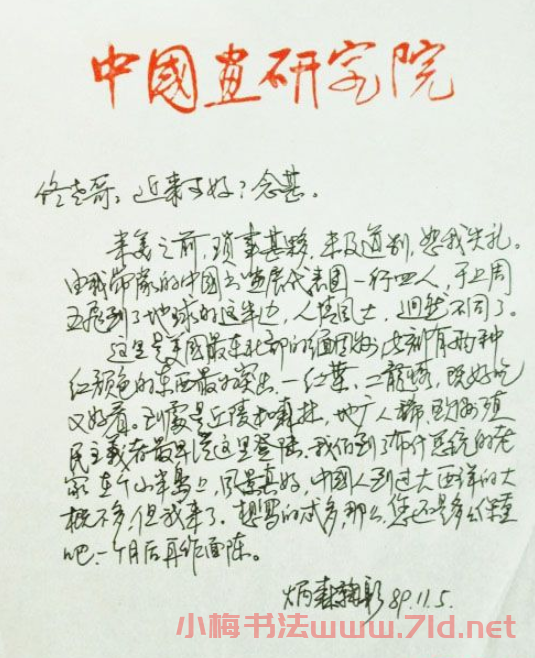 中國画研究院
佟老哥：近来可好？念甚。
来美之前，琐事甚夥，未及道别，恕我失礼。
由我带隊的中国书画展代表團一行四人，于上周
五飛到了地球的这半边，人情风土，迥然不同了。
这里是美國最东北部的缅因州，此刻有两种
红颜色的东西最为突出，一红葉，二龍蝦，既好吃
又好看。到處是丘陵和森林，地广人稀，欧洲殖
民主義者最早從这里登陆。我们到了布什总统的老
家在个山半岛上，风景真好，中國人到过大西洋的大
概不多，但我来了。想寫的太多，那么，您还是多多保重
吧，一个月后再作面陈。
炳森 89.11.5.
小梅书法www.7ld.net